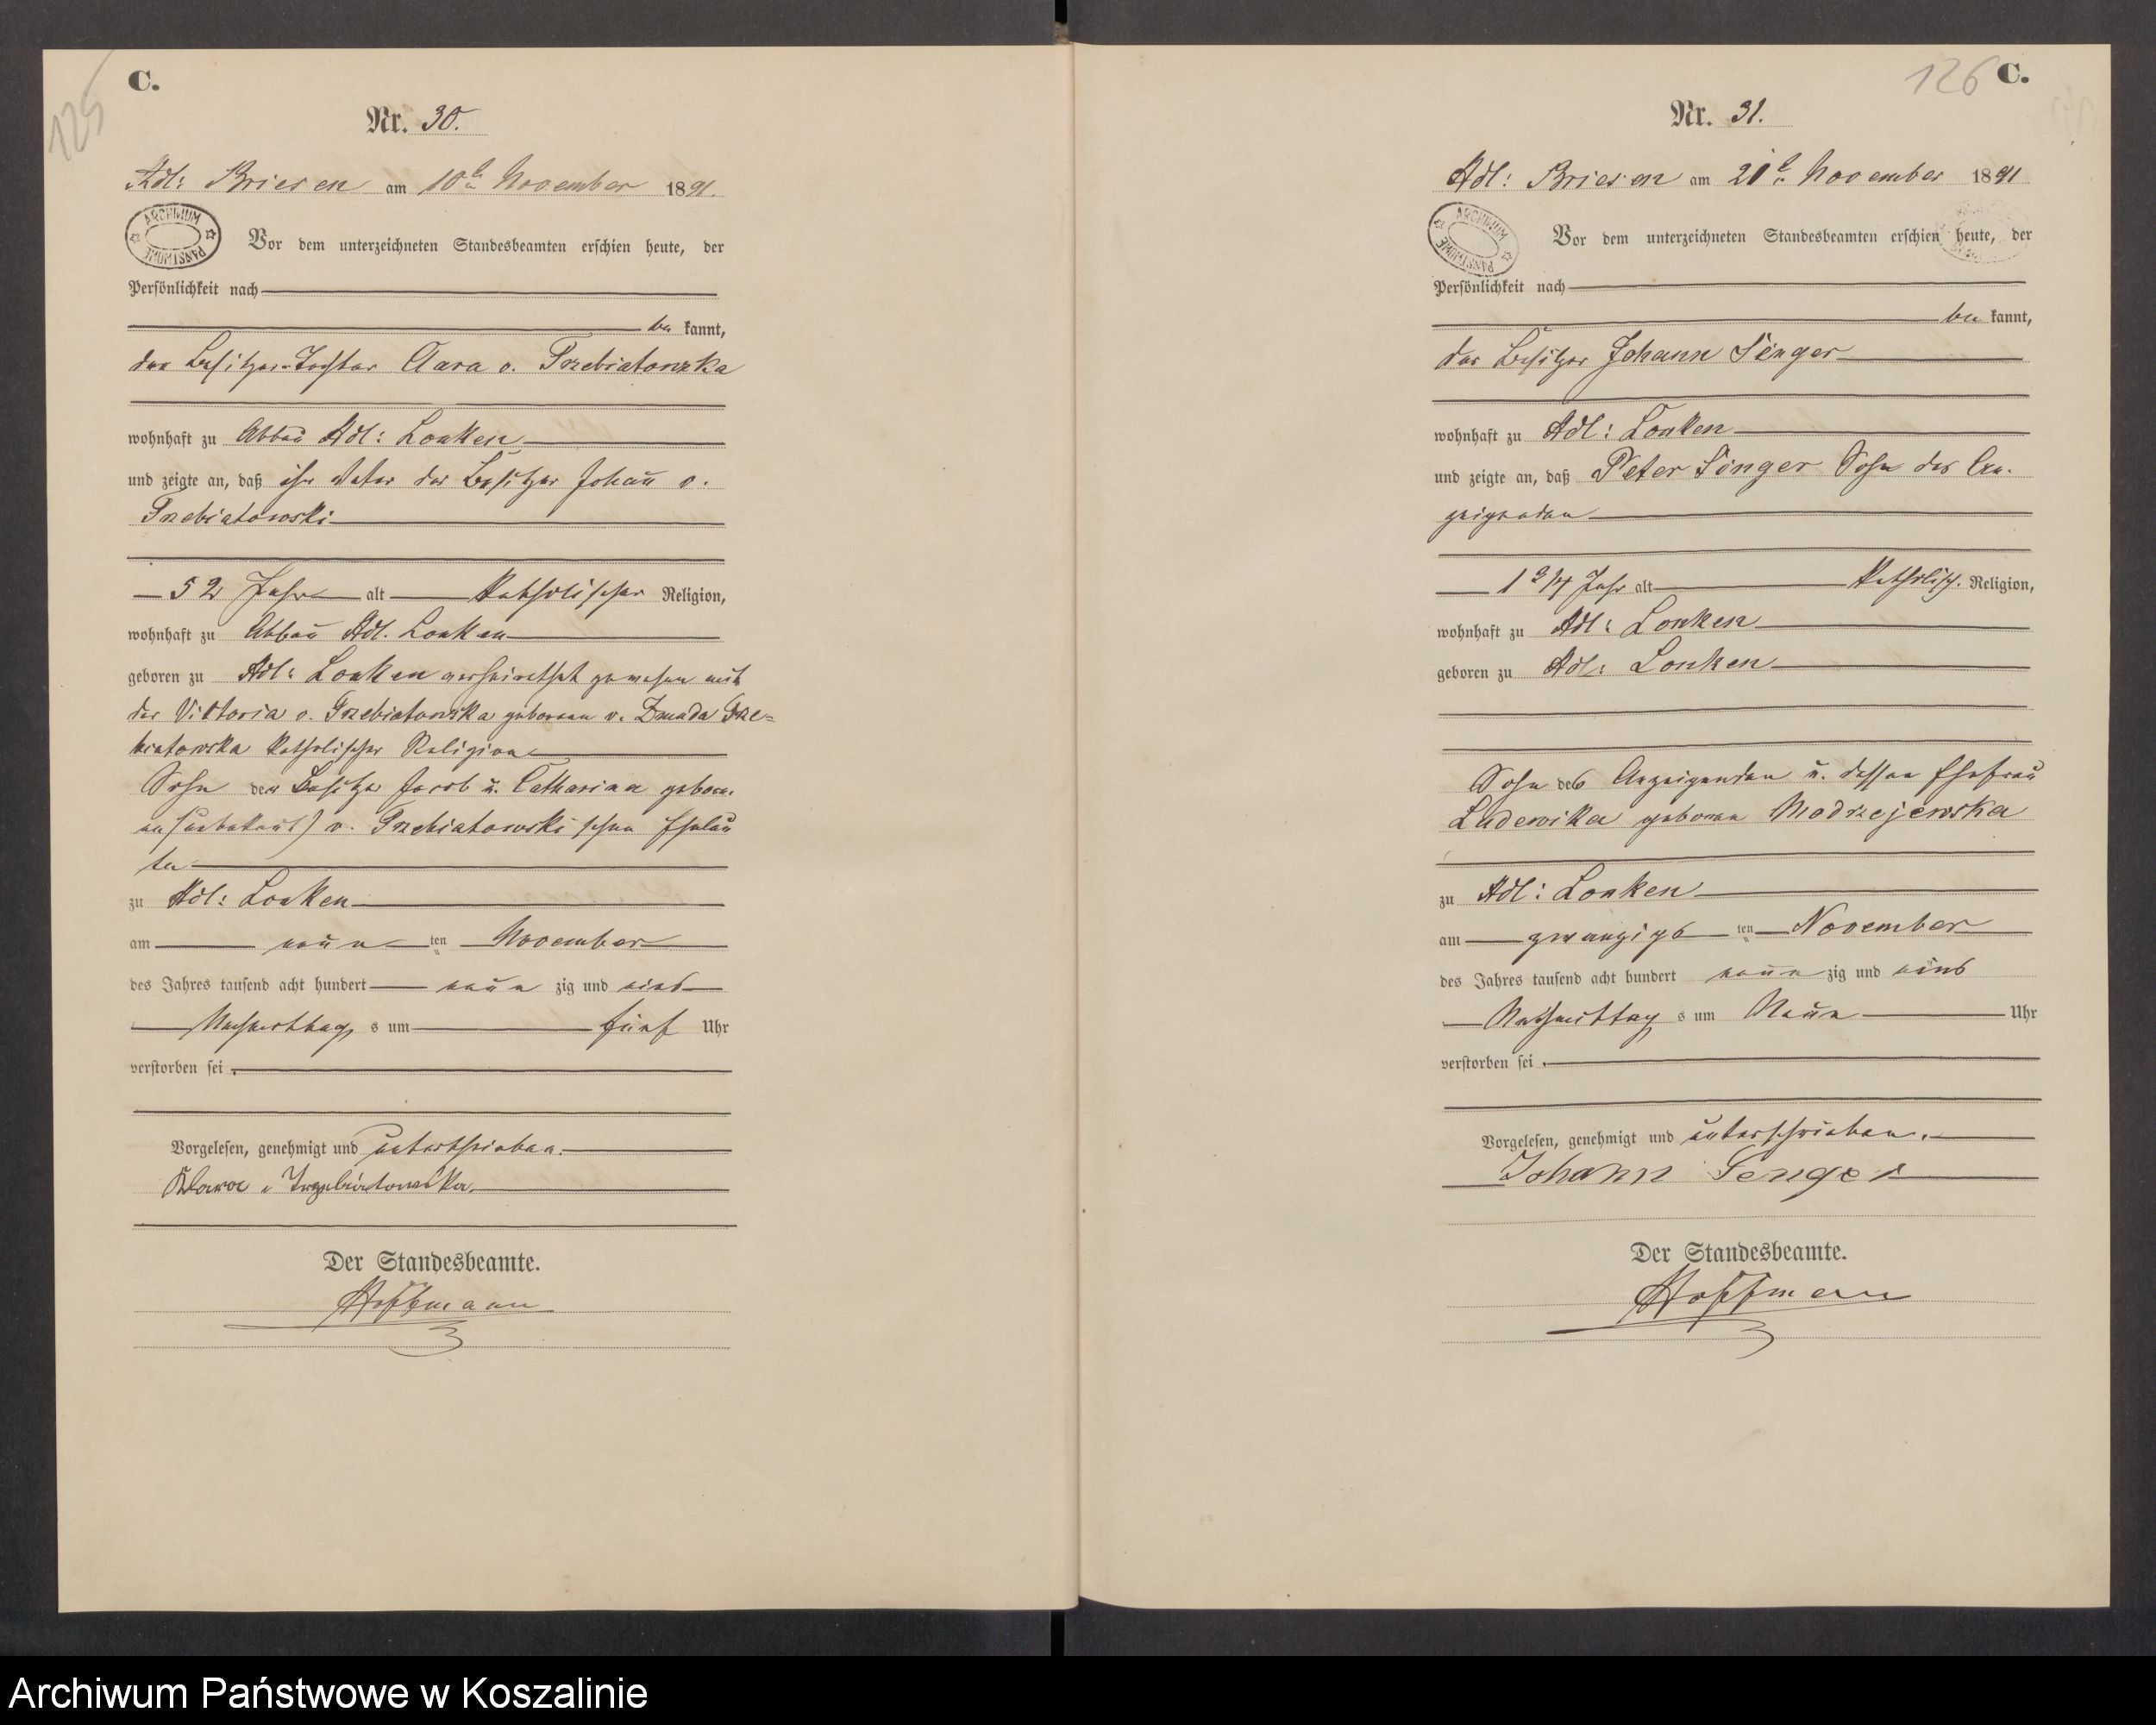 125
C.
Nr. 30.
Adl: Briesen am 10t November 1891.
ARCHIWUM PAŃSTWOWE
Vor dem unterzeichneten Standesbeamten erschien heute, der
Persönlichkeit nach
be kannt,
der Besitzer-Tochter Clara v. Trzebiatowska
wohnhaft zu Abbau Adl: Lonken
und zeigte an, daß ihr Vater der Besitzer Johan̄ v.
Trzebiatowski
52 Jahr alt katholischer Religion,
wohnhaft zu Abbau Adl. Lonken
geboren zu Adl: Lonken verheirathet gewesen mit
der Viktoria v. Trzebiatowska geborene v. Zmuda Trze=
biatowska katholischer Religion
Sohn der Besitzer Jacob u. Catharina gebore-
ne (unbekant) v. Trzebiatowski schen Eheleu
te
zu Adl: Lonken
am neun ten November
des Jahres tausend acht hundert neun zig und eins
Nachmittag s um fünf Uhr
verstorben sei.
Vorgelesen, genehmigt und unterschrieben.
Klara v Trzebiatowska.
Der Standesbeamte.
Hoffmann
126 C.
Nr. 31.
Adl: Briesen am 21t November 1891
ARCHIWUM PAŃSTWOWE
Vor dem unterzeichneten Standesbeamten erschien heute, der
Persönlichkeit nach
be kannt,
der Besitzer Johann Senger
wohnhaft zu Adl: Lonken
und zeigte an, daß Peter Senger Sohn des An-
zeigenden
1 3/4 Jahr alt katholisch. Religion,
wohnhaft zu Adl: Lonken
geboren zu Adl: Lonken
Sohn des Anzeigenden u. dessen Ehefrau
Ludewika geborene Modrzejewska
zu Adl: Lonken
am zwanzigs ten November
des Jahres tausend acht hundert neun zig und eins
Nachmittag s um Neun Uhr
verstorben sei.
Vorgelesen, genehmigt und unterschrieben.
Johann Senger
Der Standesbeamte.
Hoffmann
Archiwum Państwowe w Koszalinie